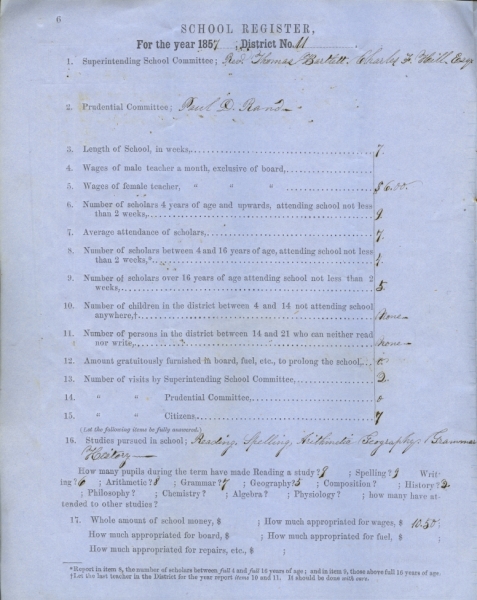 6
SCHOOL REGISTER,
For the year 1857 ; District No. 11
1. Superintending School Committee; Red. Thomas Bartlett, Charles F. Hill, Esqr
2. Prudential Committee; Paul D. Rand
3. Length of School, in weeks, 7
4. Wages of male teacher a month, exclusive of board,
5. Wages of female teacher, " " " $6.00
6. Number of scholars 4 years of age and upwards, attending school not less
than 2 weeks, 9
7. Average attendance of scholars, 7
8. Number of scholars between 4 and 16 years of age, attending school not less
than 2 weeks,*
9. Number of scholars over 16 years of age attending school not less than 2
weeks, 5
10. Number of children in the district between 4 and 14 not attending school
anywhere,† None
11. Number of persons in the district between 14 and 21 who can neither read
nor write, None
12. Amount gratuitously furnished in board, fuel, etc., to prolong the school, 0
13. Number of visits by Superintending School Committee, 2
14. " " Prudential Committee, 0
15. " " Citizens, 7
(Let the following items be fully answered.)
16. Studies pursued in school; Reading, Spelling, Arithmetic Geography, Grammar
History
How many pupils during the term have made Reading a study? 9 ; Spelling? 9 Writ-
ing? 6 ; Arithmetic? 8 ; Grammar? 7 ; Geography? 5 ; Composition? ; History? 2.
; Philosophy? ; Chemistry? ; Algebra? ; Physiology? ; how many have at-
tended to other studies?
17. Whole amount of school money, $ ; How much appropriated for wages, $ 10.50
How much appropriated for board, $ ; How much appropriated for fuel, $ ;
How much appropriated for repairs, etc., $ ;
*Report in item 8, the number of scholars between full 4 and full 16 years of age; and in item 9, those above full 16 years of age.
†Let the last teacher in the District for the year report items 10 and 11. It should be done with care.